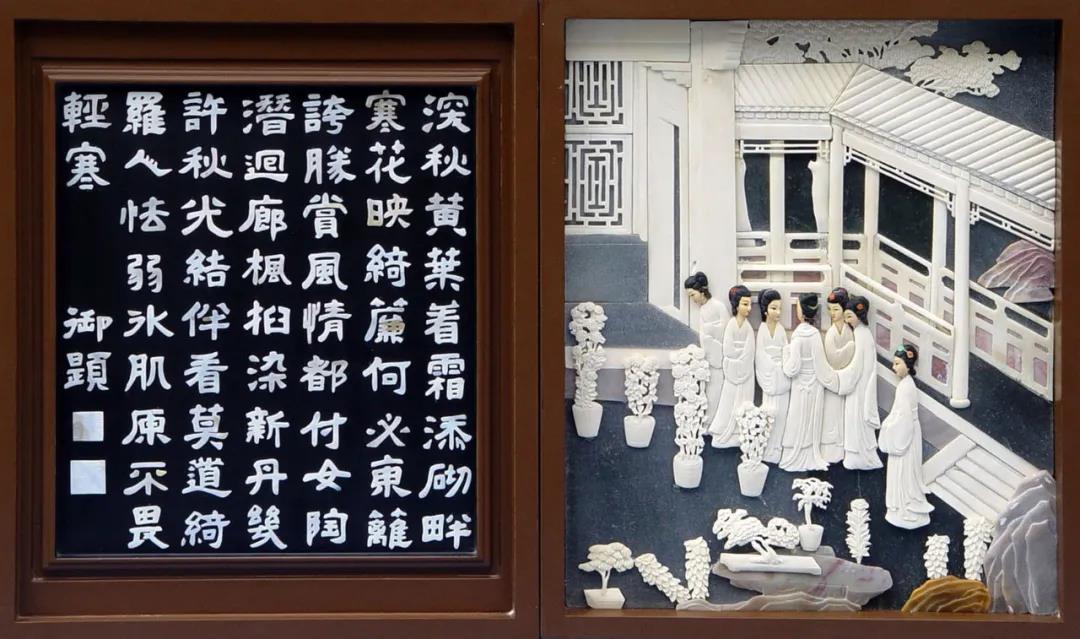 深秋黄葉着霜添砌畔
寒花映綺簾何必東籬
誇勝賞風情都付女陶
潛迴廊楓桕染新丹幾
許秋光結伴看莫道綺
羅人怯弱氷肌原不畏
輕寒 御題